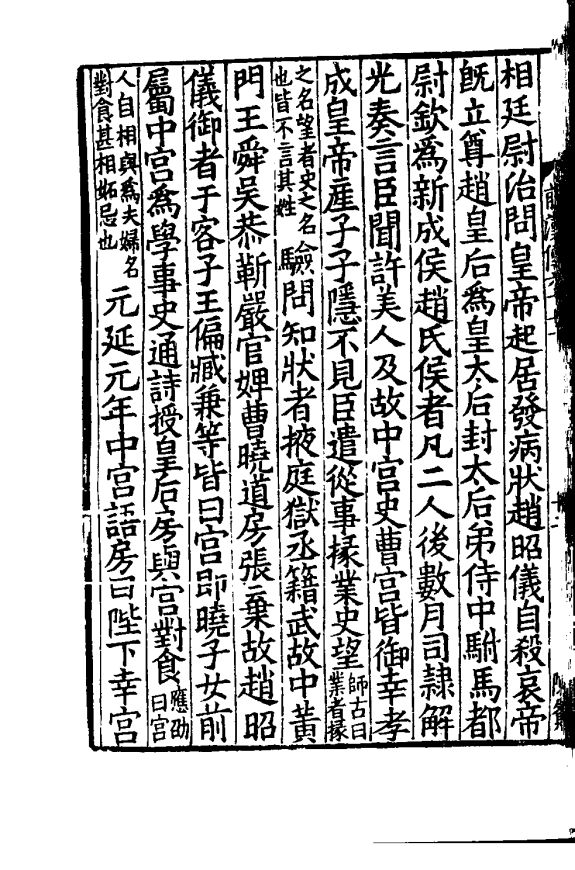 相廷尉治問皇帝起居發病狀趙昭儀自殺哀帝
旣立尊趙皇后爲皇太后封太后弟侍中駙馬都
尉欽爲新成侯趙氏侯者凡二人後數月司隷解
光奏言臣聞許美人及故中宮史曹宮皆御幸孝
成皇帝産子子隱不見臣遣從事掾業史望師古曰業者掾
之名望者史之名也皆不言其姓驗問知狀者掖庭獄丞籍武故中黃
門王舜吳恭靳嚴官婢曹曉道房張棄故趙昭
儀御者于客子王偏臧兼等皆曰宮即曉子女前
屬中宮爲學事史通詩授皇后房與宮對食應劭曰宮
人自相與爲夫婦名對食甚相妬忌也元延元年中宮語房曰陛下幸宮